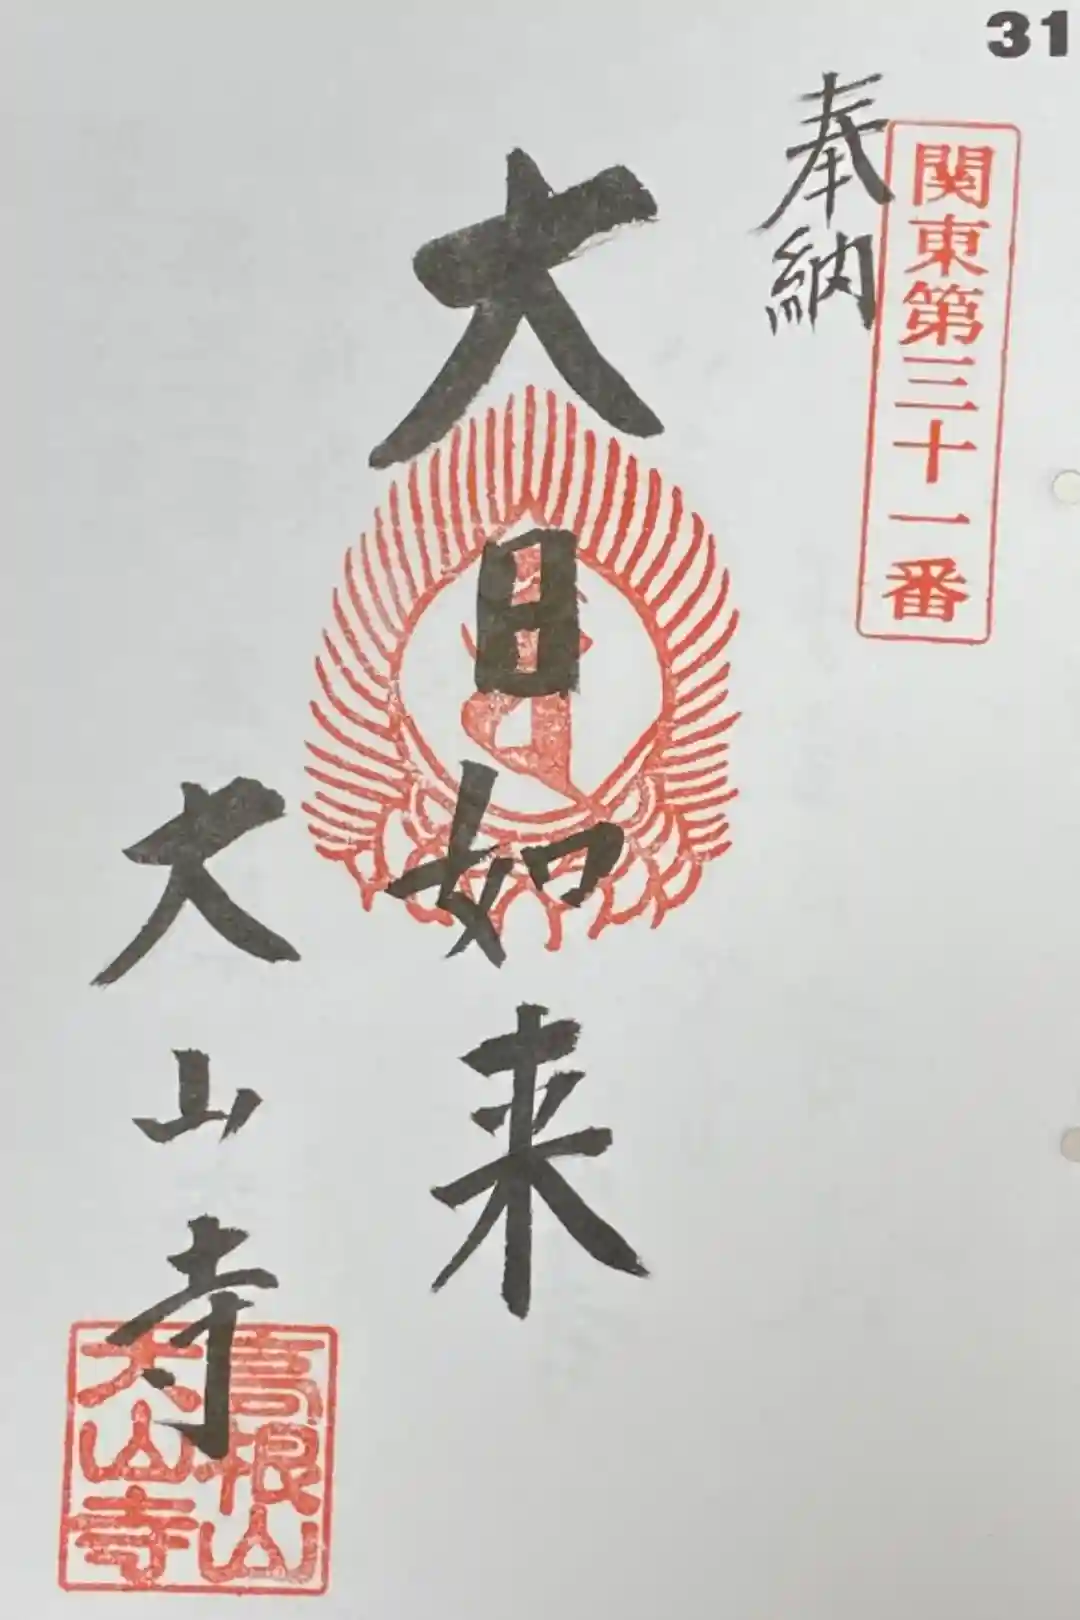 31
関東第三十一番
奉納
大日如来
大山寺
高根山
大山寺